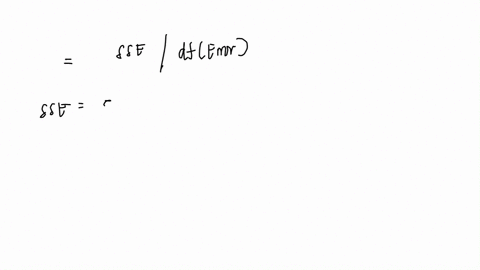 = SSE / df(Error)
SSE =